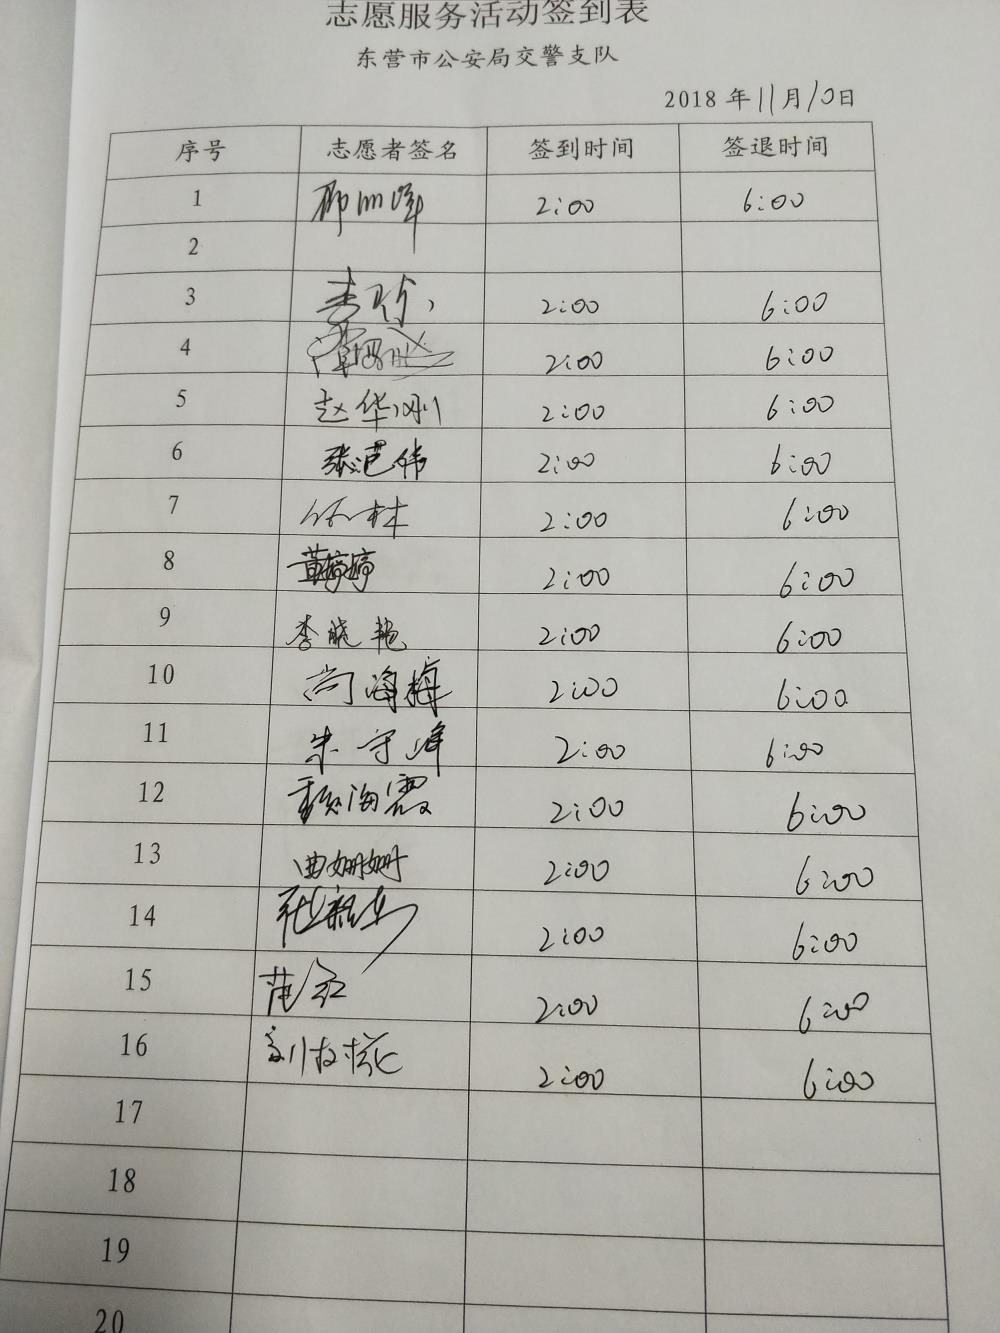 志愿服务活动签到表
东营市公安局交警支队
2018 年 11 月 10 日
序号 志愿者签名 签到时间 签退时间
1 2:00 6:00
2
3 李 2:00 6:00
4 2:00 6:00
5 赵华刚 2:00 6:00
6 张范伟 2:00 6:00
7 任林 2:00 6:00
8 黄婷婷 2:00 6:00
9 李晓艳 2:00 6:00
10 尚海梅 2:00 6:00
11 朱守峰 2:00 6:00
12 魏海霞 2:00 6:00
13 曲姗姗 2:00 6:00
14 2:00 6:00
15 范红 2:00 6:00
16 2:00 6:00
17
18
19
20